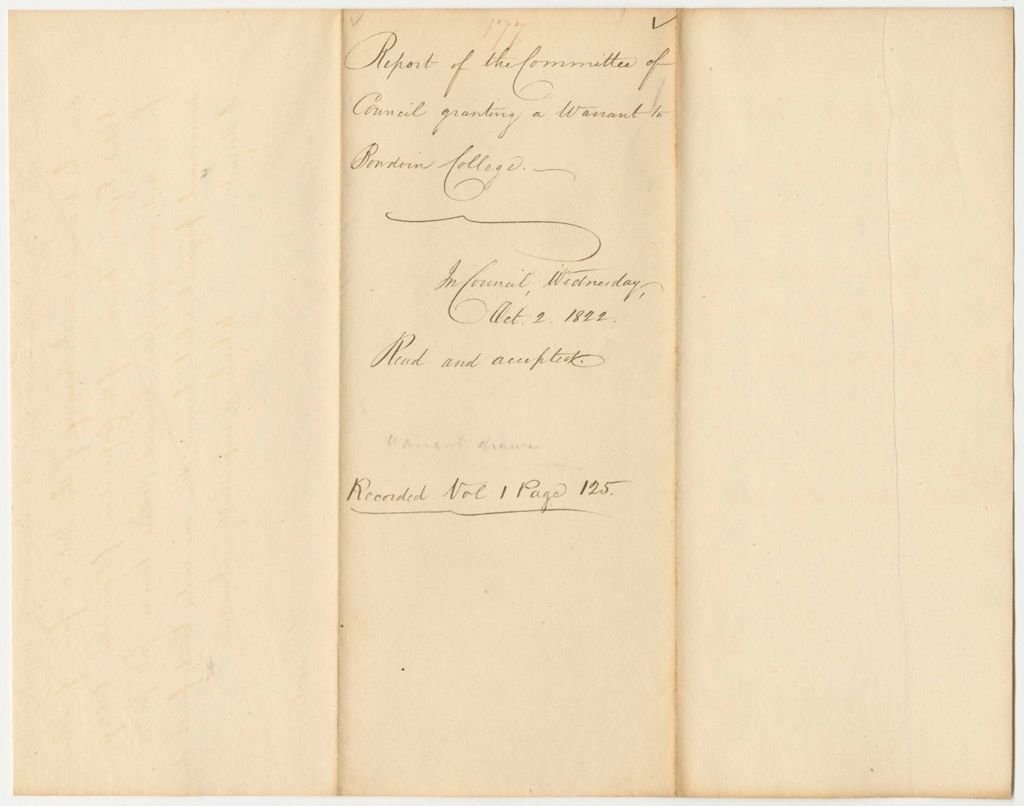 177
Report of the Committee of
Council granting a Warrant to
Bowdoin College.
In Council, Wednesday,
Oct. 2. 1822.
Read and accepted.
Warrant drawn
Recorded Vol 1 Page 125.